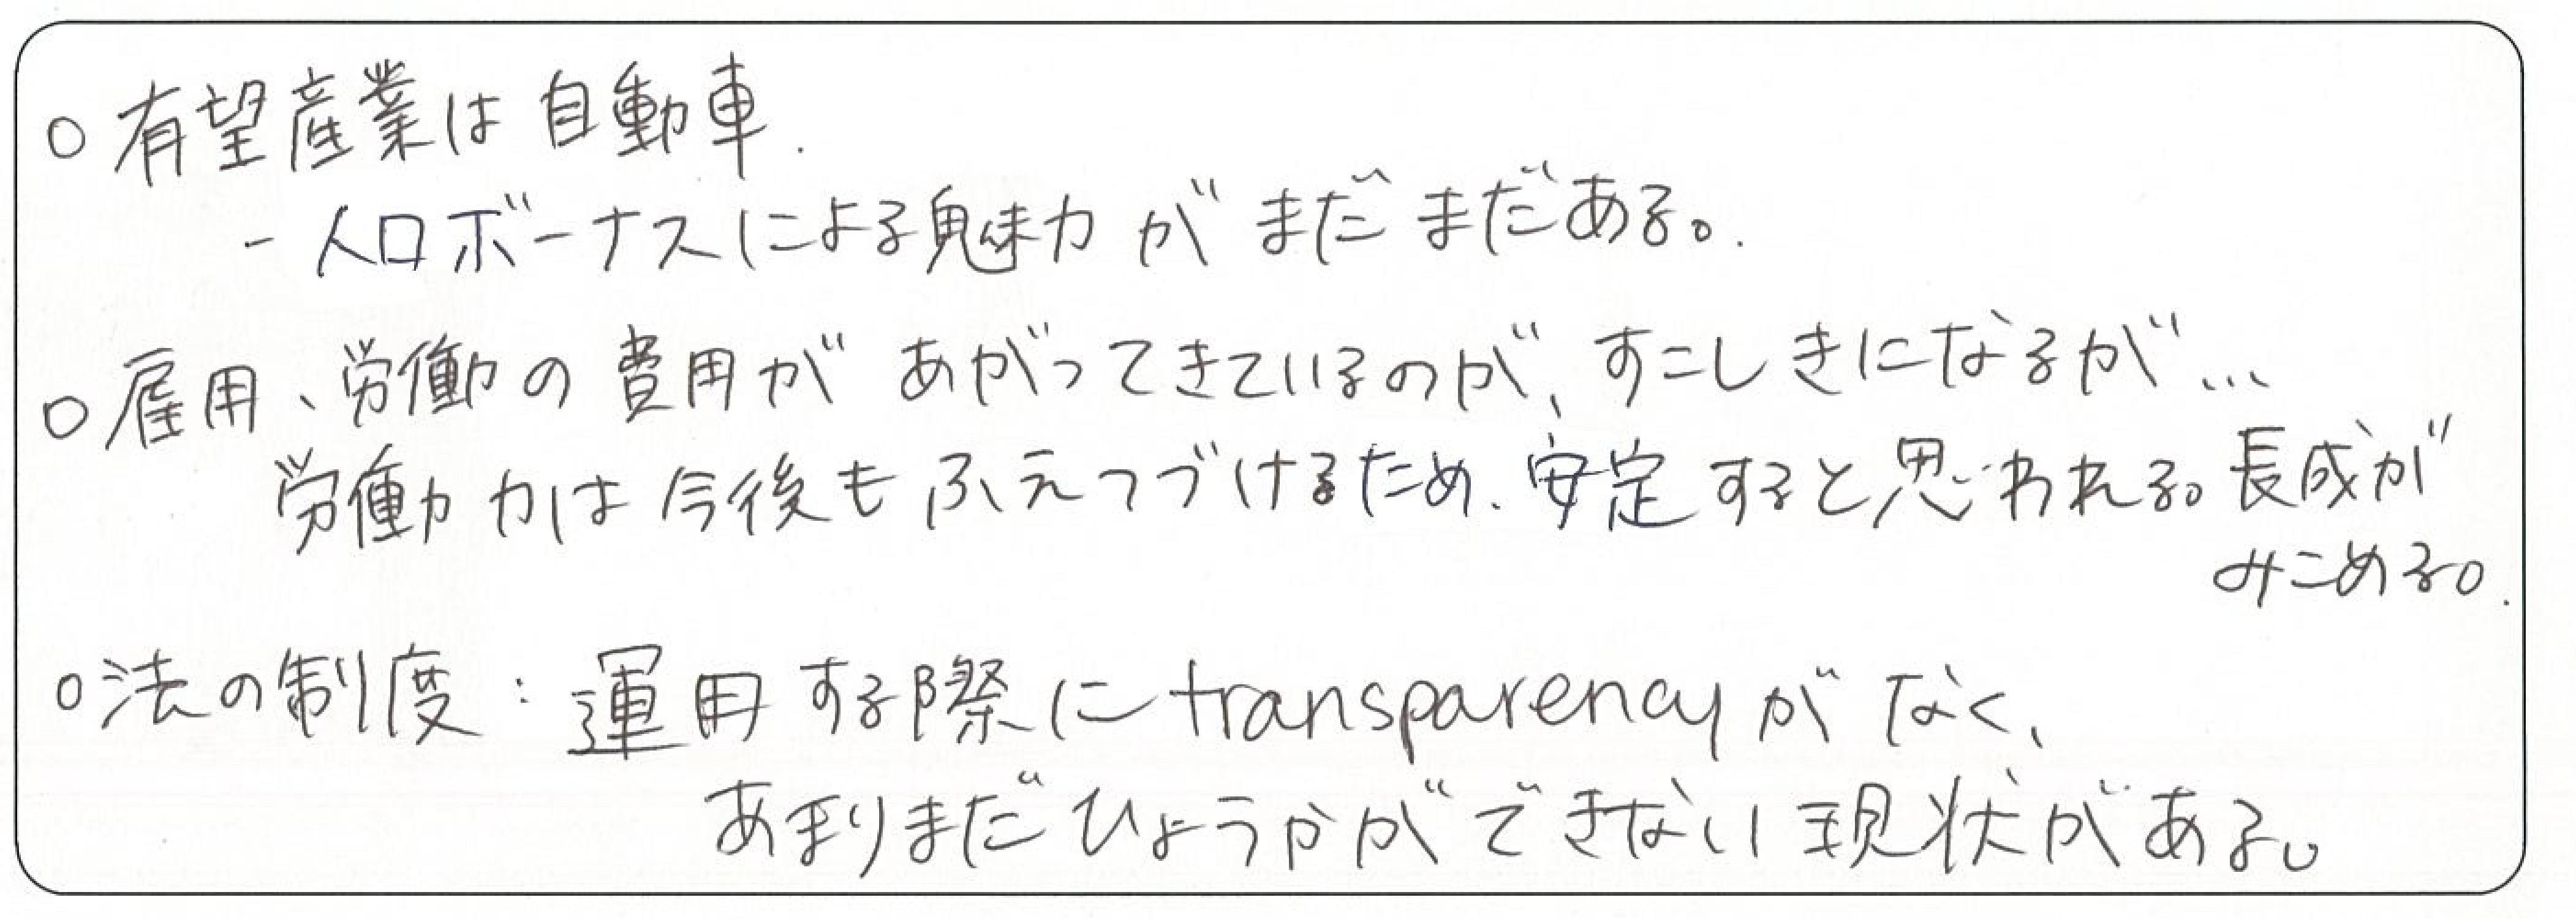 ○ 有望産業は自動車.
- 人口ボーナスによる魅力がまだまだある。.
○ 雇用、労働の費用があがってきているのが、すこしきになるが...
労働力は今後もふえつづけるため、安定すると思われる。長成が
みこめる。.
○ 法の制度:運用する際にtransparencyがなく、
あまりまだひょうかができない現状がある。